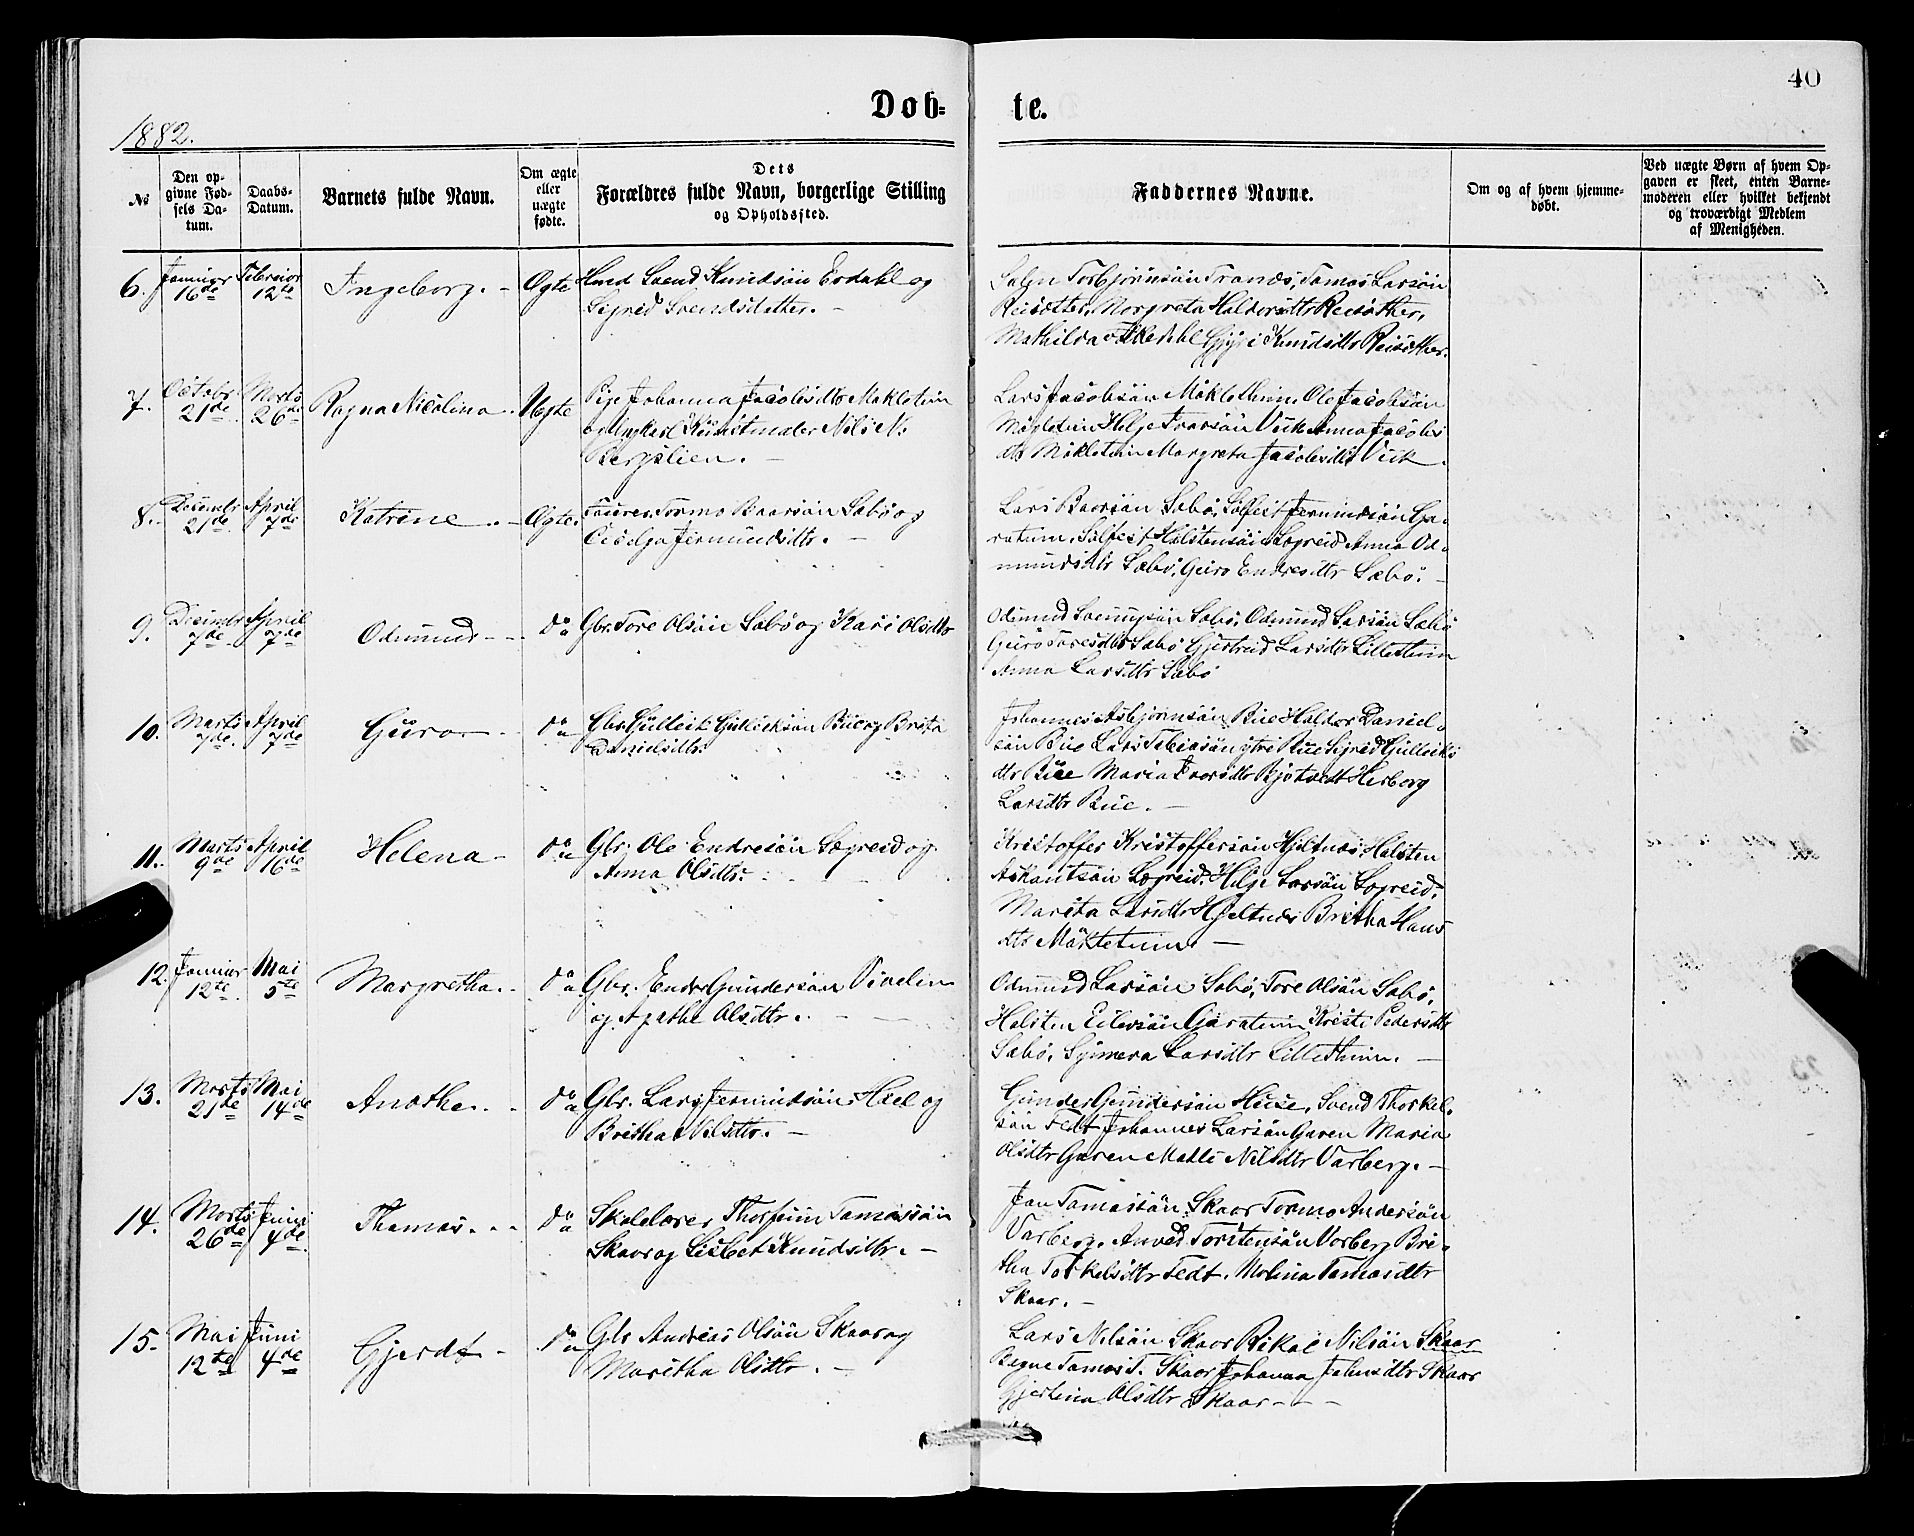 40
Døb-
te.
1882.
No
Den opgivne Fødsels Datum.
Daabs-Datum.
Barnets fulde Navn.
Om ægte eller uægte fødte.
Dets
Forældres fulde Navn, borgerlige Stilling
og Opholdssted.
Faddernes Navne.
Om og af hvem hjemmedøbt.
Ved uægte Børn af hvem Opgaven er skeet, enten Barnemoderen eller hvilket bekjendt og troværdigt Medlem af Menigheden.
6. Januar 16de Februar 12te Ingeborg. Ægte Svend Knudsön Erdahl og
Sigrid Svendsdatter.
Torbjörnsön Tranæs, Tomas Larsön
Reisæther, Margreta Haldorsdtr Reisæther,
Mathilda Knudsdtr Reisæther.
7. Octobr 21de Marts 26de Ragna Nicolina Uægte Pige Johanna Jacobsdtr Mækletuin
og Ungkarl Kunstmaler Nils N.
Bergslien.
Lars Jacobsön Mækletuin, Ole Jacobsön
Mækletuin Helje Ivarsön Vik Anna Jacobs
dtr Mækletuin Margreta Jacobsdtr Vik.
8. Decembr 21de April 7de Katrine Ægte Tormo Baarsön Sæbö og
Jermundsdtr.
Lars Baarsön Sæbö, Sølfest Jermundsön Ga-
ratuin, Sølfest Halstensön Legreid Anna Od-
mundsdtr Sæbö, Guro Endresdtr Sæbö.
9. Decembr 7de April 7de Odmund do Gbr. Tore Olsön Sæbö og Kari Olsdtr
Odmund Sæbö, Odmund Larsön Sæbö
Guro Toresdtr Sæbö Gjertrud Larsdtr Lilletuin
Anna Larsdtr Sæbö
10. Marts 7de April 7de Guro do Gbr. Gulleik Gulleiksön Bue og Brita
Danielsdtr.
Johannes Asbjörnsön Bue Haldor Daniel-
sön Bue Lars Tobiasön ytre Bue Sigrid Gulleiks
dtr Bue Maria Ivarsdtr Herborg
Larsdtr Bue.
11. Marts 9de April 16de Helena do Gbr. Ole Endresön Legreid og
Anna Olsdtr.
Kristoffer Kristoffersön Hjeltnæs, Halsten
Legreid, Helje Larsön Legreid,
Marita Larsdtr Hjeltnæs Britha Hans
dtr Mækletuin.
12. Januar 12te Mai 5te Margretha do Gbr. Ender Gundersön
og Agathe Olsdtr.
Odmund Larsön Sæbö, Tore Olsön Sæbö,
Halsten Garatuin Kristi Pedersdtr
Sæbö, Synneva Larsdtr Lilletuin.
13. Marts 21de Mai 14de Anathe do Gbr. Lars Jermundsön Hæl og
Britha Olsdtr.
Gunder Gundersön Huse, Svend Thorkel-
sön Tedt Johannes Larsön Garen Maria
Olsdtr Garen Malli Nilsdtr Varberg.
14. Marts 26de Juni 4de Thomas do Skolelærer Thorfinn Tamassön
Skaar og Lisbet Knudsdtr.
Jon Tamassön Skaar Tormo Andersön
Varberg, Torstensön Varberg Bri-
tha Torkelsdtr Tedt. Molina Tamasdtr
Skaar.
15. Mai 12te Juni 4de Gjerdt do Gbr Andreas Olsön Skaar og
Maritha Olsdtr.
Lars Nilsön Skaar Mikal Nilsön Skaar
Tamas T. Skaar Johanna Johnsdtr Skaar
Gjertina Olsdtr Skaar